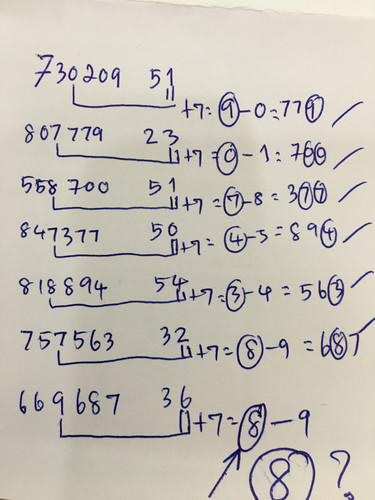 730209 51
+7=9-0=779
807779 23
+7=0-1=700
558700 51
+7=7-8=377
847377 50
+7=4-5=894
818894 54
+7=3-4=563
757563 32
+7=8-9=687
669687 36
+7=8-9
8 ?